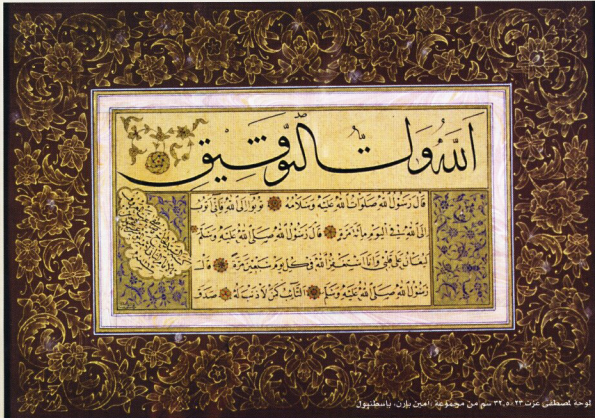 الله ولي التوفيق
قال رسول الله صلوات الله عليه وسلامه توبوا إلى الله فإني أتوب
إلى الله في اليوم مائة مرة قال رسول الله صلى الله عليه وسلم
ليغان على قلبي وأنا أستغفر الله في كل يوم سبعين مرة قال
رسول الله صلى الله عليه وسلم التائب كمن لا ذنب له صدق
لوحة لمصطفى عزت سم من مجموعة ،امين بارن، باسطنبول